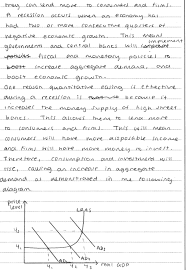 they can lend more to consumers and firms.
A recession occurs when an economy has
had two or more consecutive quarters of
negative economic growth. This means
government and central banks will implement
fiscal and monetary policies to
boost increase aggregate demand, and
boost economic growth.
One reason quantitative easing is effective
during a recession is because it
increases the money supply of high street
banks. This allows them to lend more
to consumers and firms. This will mean
consumers will have more disposable income
and firms will have more money to invest.
Therefore, consumption and investment will
rise, causing an increase in aggregate
demand as demonstrated in the following
diagram.
price
level
LRAS
AD1
real GDP